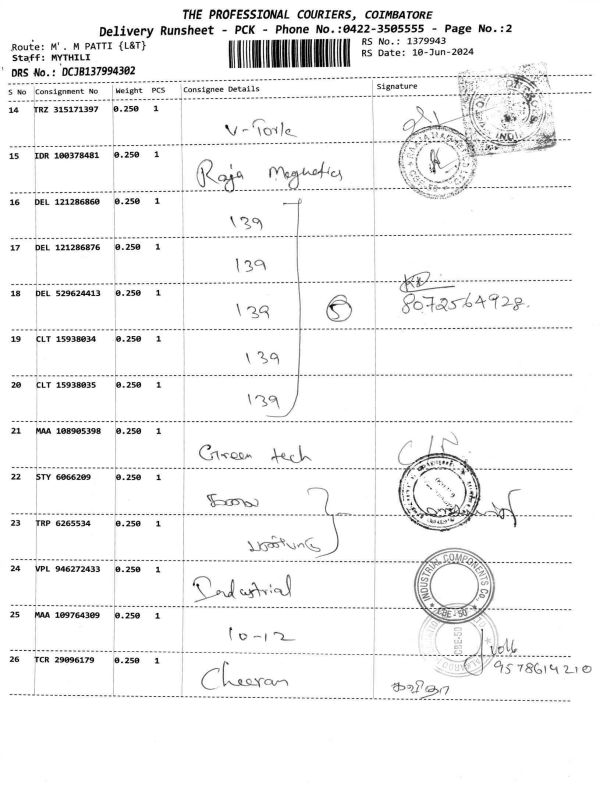 THE PROFESSIONAL COURIERS, COIMBATORE
Delivery Runsheet - PCK - Phone No.:0422-3505555 - Page No.:2
Route: M'. M PATTI {L&T}
RS No.: 1379943
Staff: MYTHILI
RS Date: 10-Jun-2024
DRS No.: DCJB137994302
S No Consignment No Weight PCS Consignee Details Signature
14 TRZ 315171397 0.250 1
V-Tork
15 IDR 100378481 0.250 1
Raja Magnetics
16 DEL 121286860 0.250 1
139
17 DEL 121286876 0.250 1
139
18 DEL 529624413 0.250 1
139 5 8072564928.
19 CLT 15938034 0.250 1
139
20 CLT 15938035 0.250 1
139
21 MAA 108905398 0.250 1
Green tech
22 STY 6066209 0.250 1
23 TRP 6265534 0.250 1
24 VPL 946272433 0.250 1
Industrial
INDUSTRIAL COMPONENTS Co.
CBE-50
25 MAA 109764309 0.250 1
10-12
CBE-50
26 TCR 29096179 0.250 1
9578614210
Cheeran
கவிதா